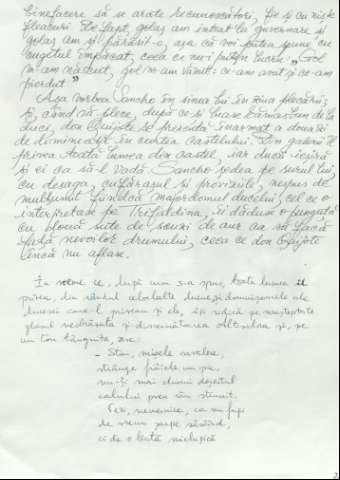 binefacere, să se arate recunoscători, fie și cu niște
fleacuri. De fapt, golaș am intrat la guvernare și
golaș am și părăsit-o, așa că voi putea spune cu
cugetul împăcat, ceea ce nu-i puțin lucru: „gol
m-am născut, gol m-am văzut: ce-am avut și ce-am
pierdut"
Așa vorbea Sancho în sinea lui în ziua plecării;
și, când să plece, după ce-și luase rămas-bun de la
duci, don Quijote se prezentă înarmat a doua zi
de dimineață în curtea castelului. Din galerii îl
privea toată lumea din castel, iar ducii ieșiră
și ei ca să-l vadă. Sancho ședea pe surul lui,
cu desaga, cufărașul și proviziile, nespus de
mulțumit fiindcă majordomul ducelui, cel ce o
interpretase pe Trifaldina, îi dăduse o punguță
cu două sute de scuzi de aur ca să facă
față nevoilor drumului, ceea ce don Quijote
încă nu aflase.
În vreme ce, după cum s-a spus, toată lumea îl
privea, din rândul celorlalte duenii și domnișoare ale
ducesei care-l priveau și ele, își ridică pe neașteptate
glasul nebunatica și dezmățata Altisidora și, pe
un ton tânguitor, zise:
- Stai, mișele cavaler,
strânge frâiele un pic,
nu-ți mai chinui deșertul
calului prea rău strunit.
Vezi, nevernice, că nu fugi
de vreun șarpe
ci de o biată mielușică